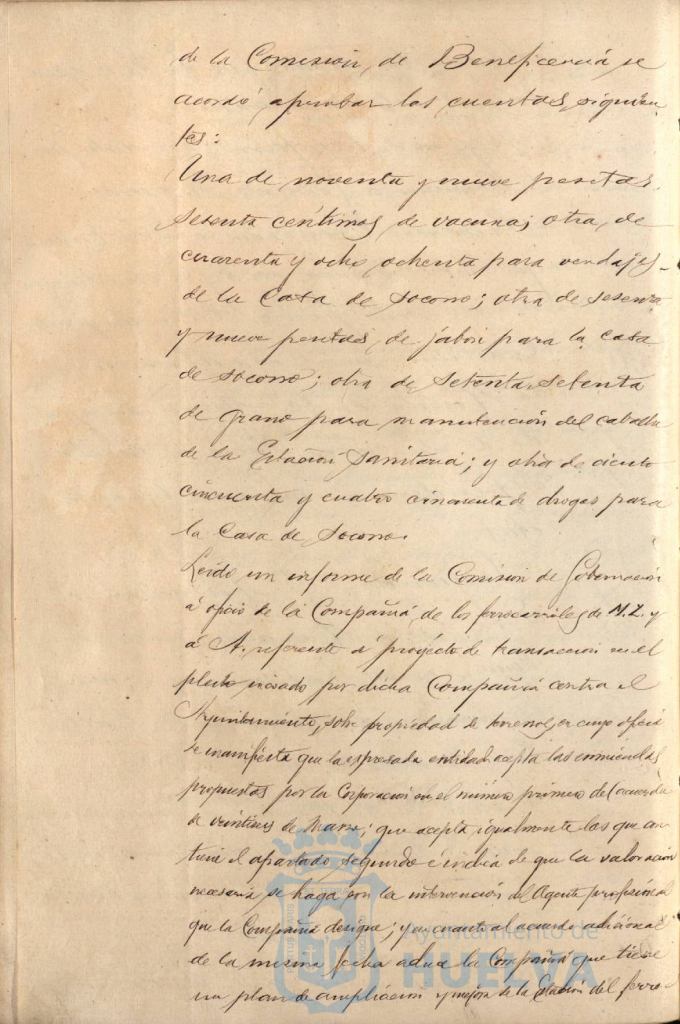 de la Comisión, de Beneficencia se
acordó aprobar las cuentas, siguien
tes:
Una de noventa y nueve pesetas,
setenta centimos de vacuna; otra, de
cuarenta y ocho ochenta para vendajes
de la Casa de Socorro; otra de sesenta
y nueve pesetas, de jabón para la casa
de socorro; otra de setenta setenta
de grano para manutención del caballo
de la Estación Sanitaria; y otra de ciento
cincuenta y cuatro cincuenta de drogas para
la Casa de Socorro.
Leido un informe de la Comisión de Gobernación
á oficio de la Compañía de los ferrocarriles de M. Z. y
á A. referente á proyecto de transaccion en el
pleito iniciado por dicha Compañía contra el
Ayuntamiento, sobre propiedad de terrenos, en cuyo oficio
se manifiesta que la espresada entidad acepta las enmiendas
propuestas por la Corporación en el número primero del acuerdo
de veintiuno de Marzo; que acepta igualmente las que con
tiene el apartado segundo é indica de que la valoración
necesaria se haga con la intervención del Agente profesional
que la Compañía designe; y en cuanto al acuerdo adicional
de la misma fecha aduce la Compañía que tiene
un plan de ampliacion y mejora de la Estación del ferro
Ayuntamiento de
HUELVA